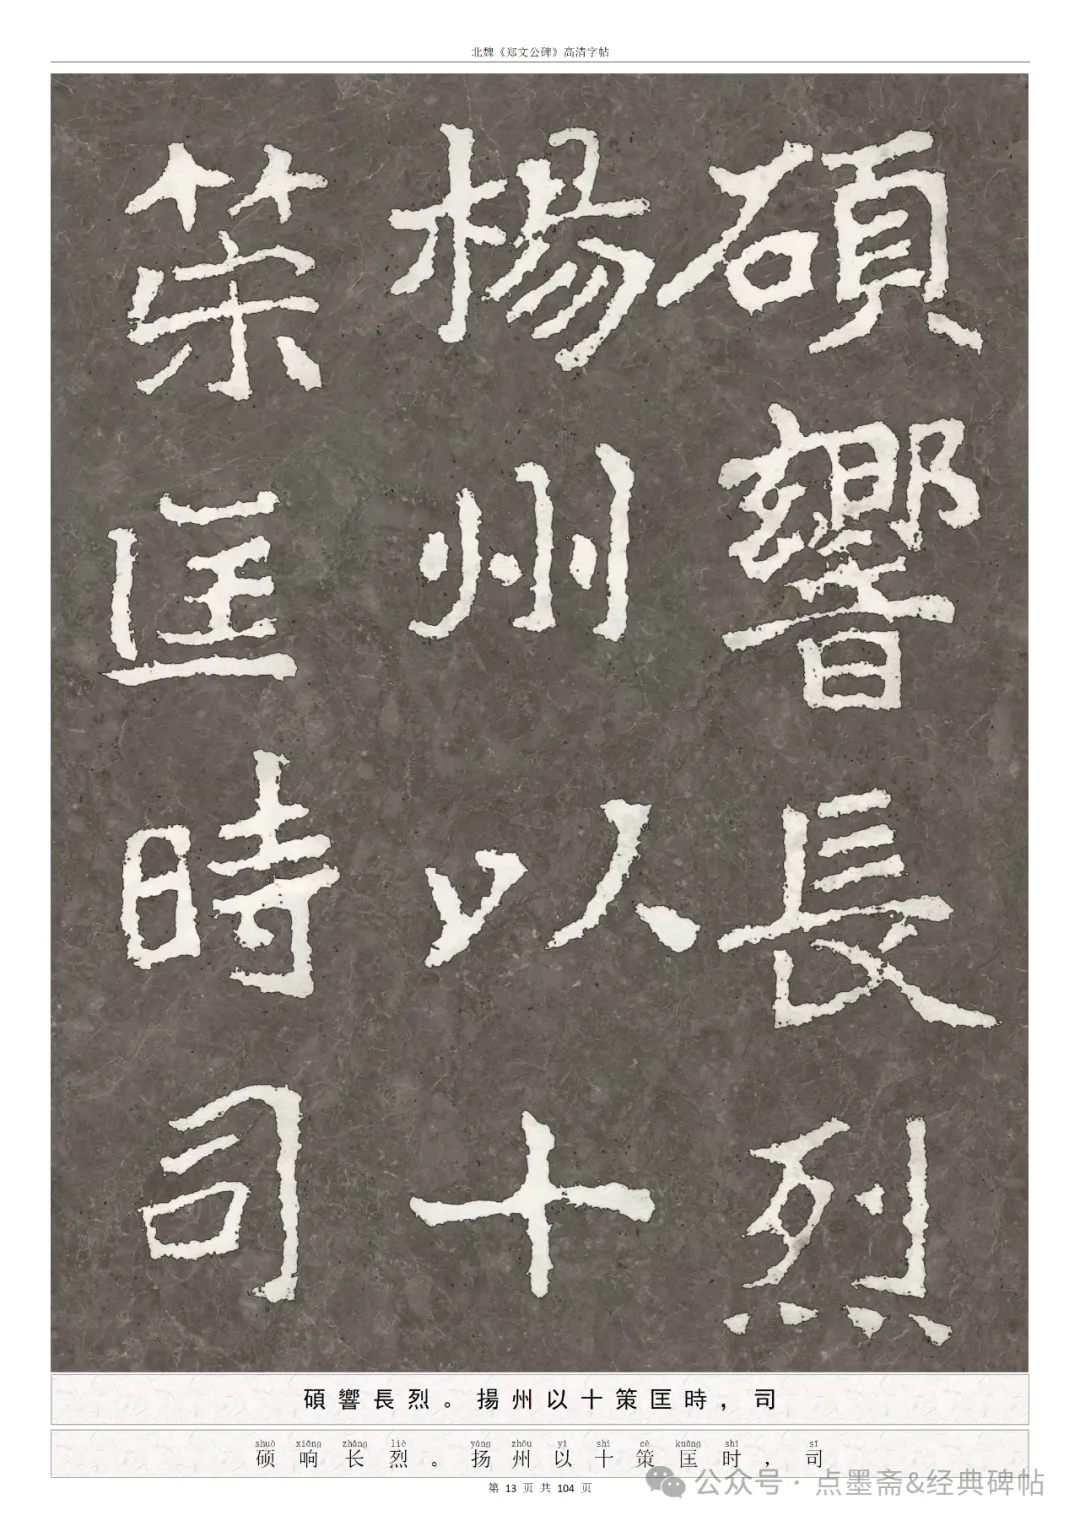 北魏《郑文公碑》高清字帖
碩響長烈
楊州以十
策匡時司
碩響長烈。揚州以十策匡時，司
shuò xiǎng zhǎng liè yáng zhōu yǐ shí cè kuāng shí sī
硕响长烈。扬州以十策匡时，司
第 13 页 共 104 页
公众号·点墨斋&经典碑帖